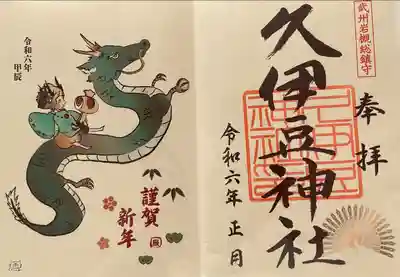 武州岩槻総鎮守
奉拝
久伊豆神社
令和六年 正月
令和六年
甲辰
謹賀
新年